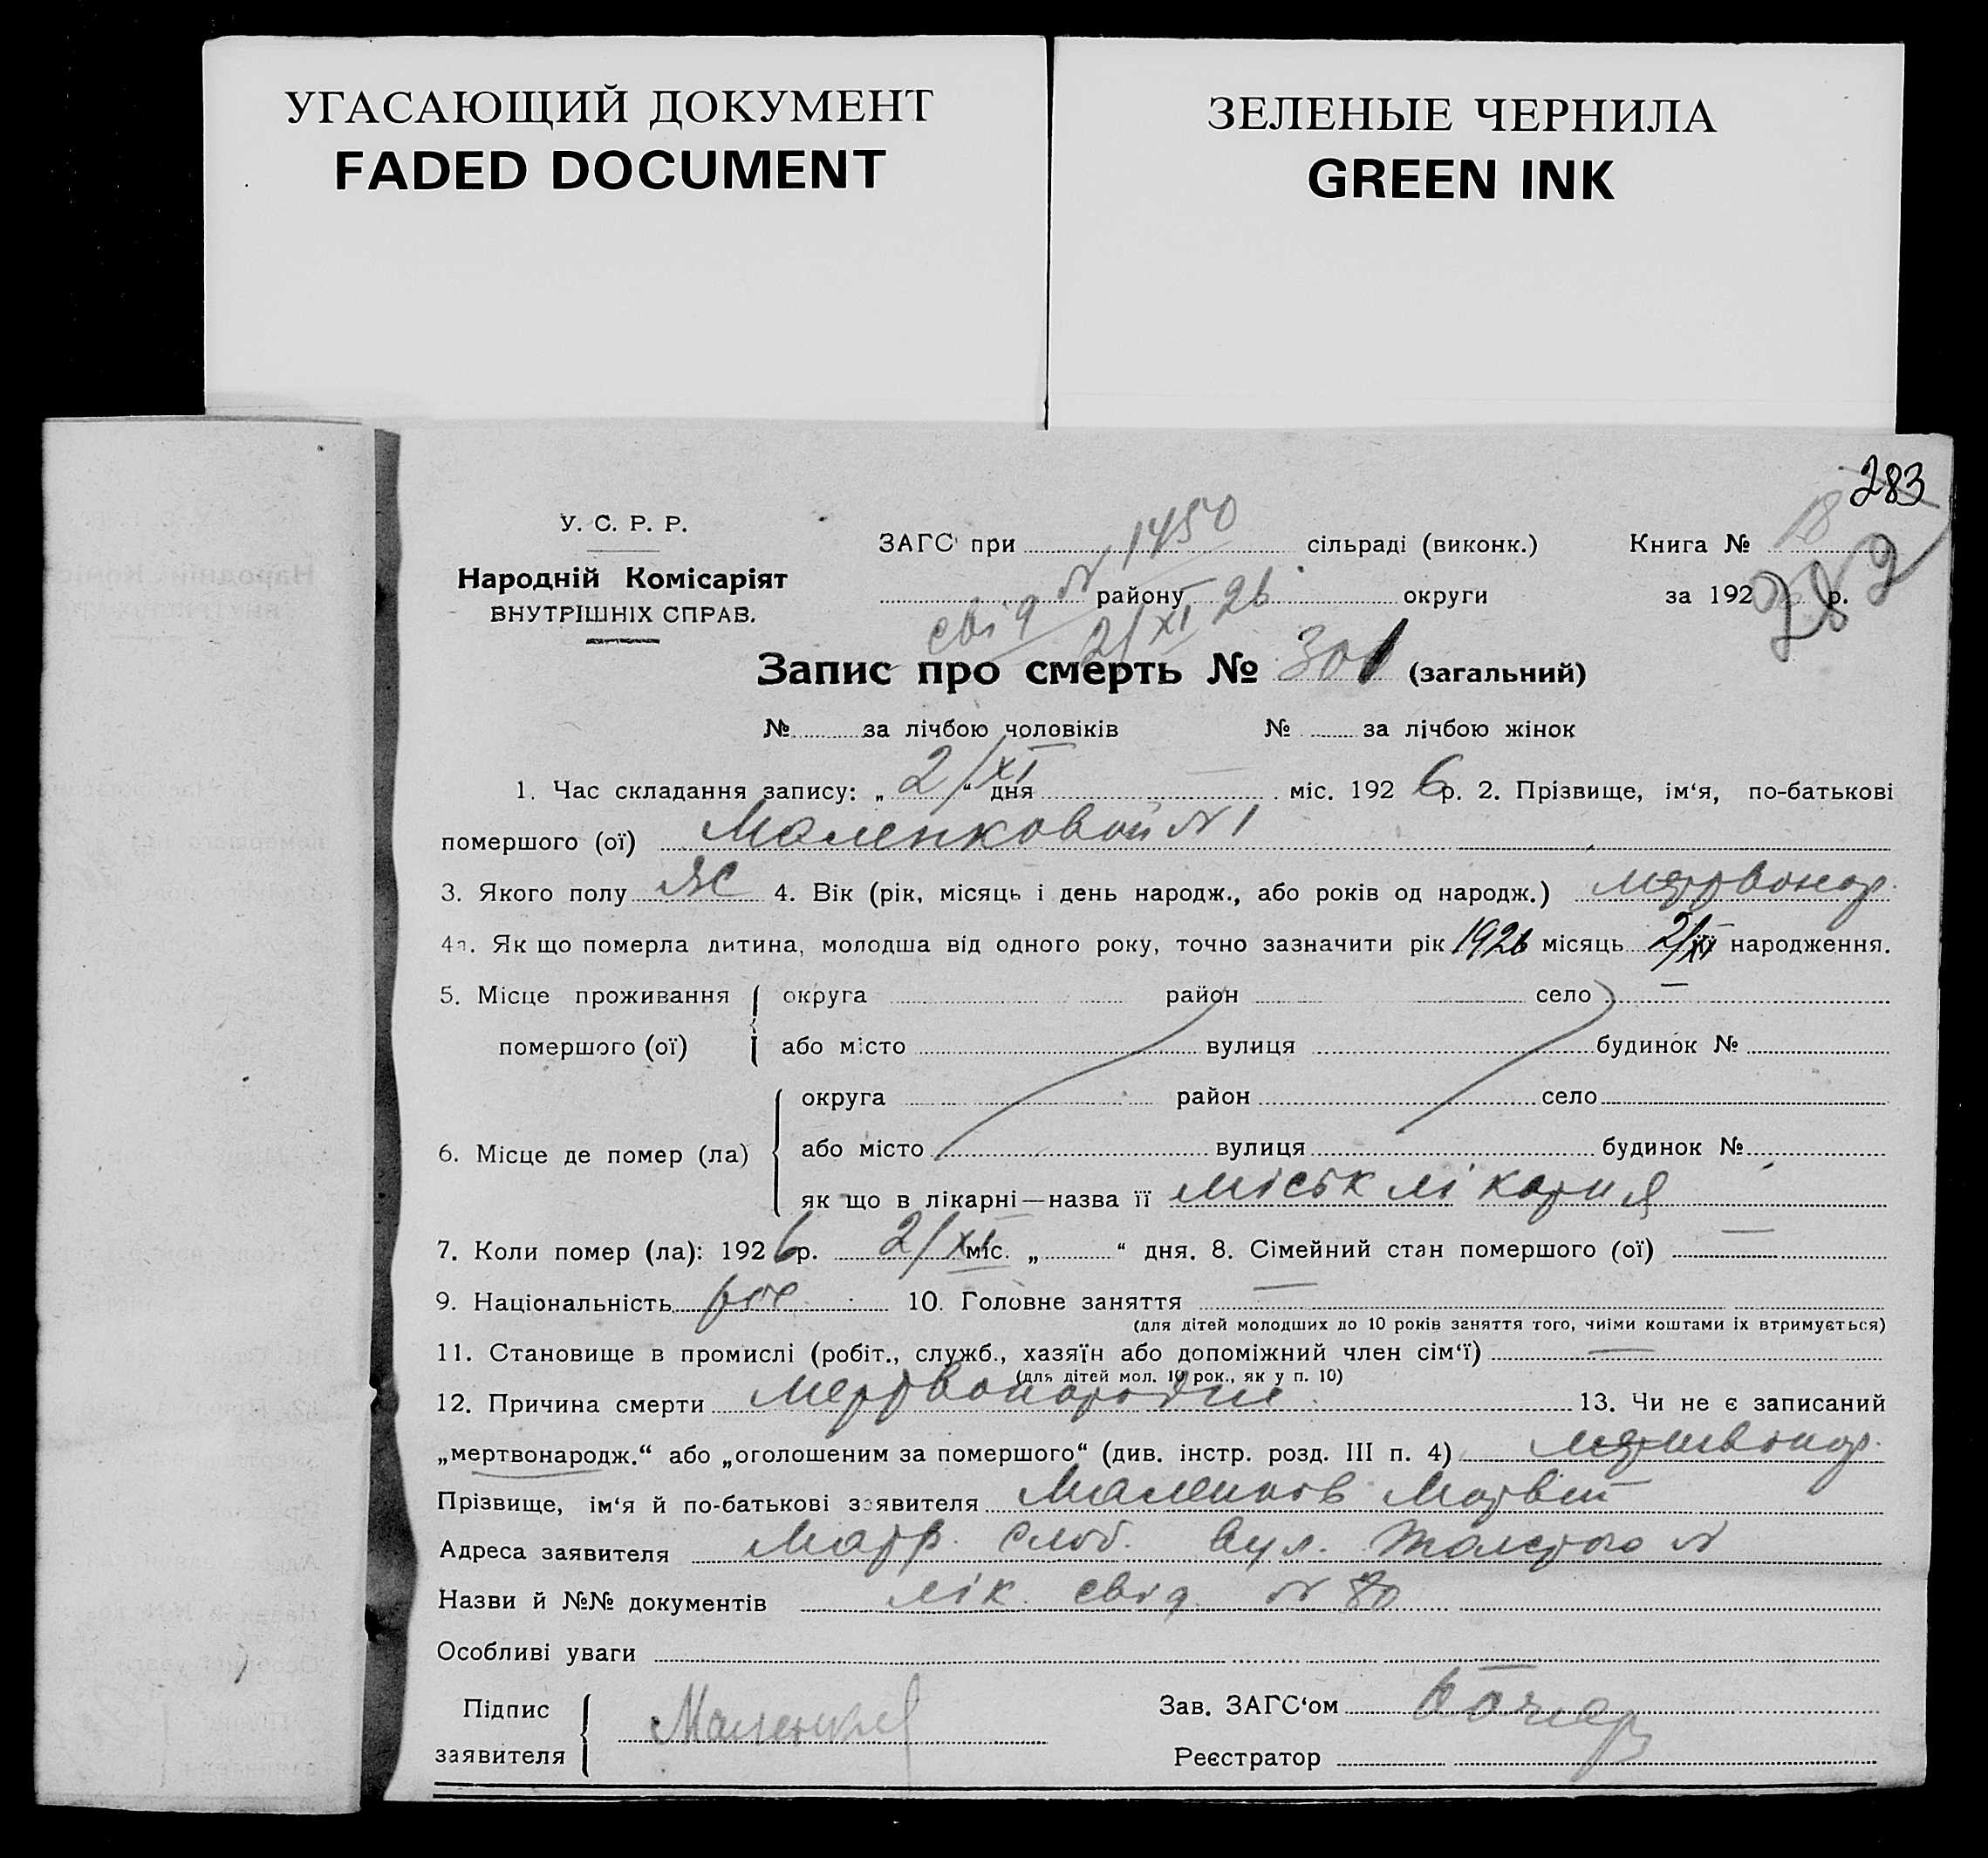 УГАСАЮЩИЙ ДОКУМЕНТ
FADED DOCUMENT
ЗЕЛЕНЫЕ ЧЕРНИЛА
GREEN INK
283
282
У. С. Р. Р.
Народній Комісаріят
ВНУТРІШНІХ СПРАВ.
ЗАГС при № 1450 сільраді (виконк.) Книга № 18
району округи за 192 р.
свід 2/XI 26
Запис про смерть № 301 (загальний)
№ за лічбою чоловіків № за лічбою жінок
1. Час складання запису: „ 2/XI “ дня міс. 1926 р. 2. Прізвище, ім‘я, по-батькові
помершого (ої) Маленковой № 1
3. Якого полу ж 4. Вік (рік, місяць і день народж., або років од народж.) мертвонар.
4а. Як що померла дитина, молодша від одного року, точно зазначити рік 1926 місяць 2/XI народження.
5. Місце проживання округа район село —
помершого (ої) або місто вулиця будинок №
округа район село
6. Місце де помер (ла) або місто вулиця будинок №
як що в лікарні—назва її міськ лікарня
7. Коли помер (ла): 1926 р. 2/XI міс. „ “ дня. 8. Сімейний стан помершого (ої) —
9. Національність 10. Головне заняття —
(для дітей молодших до 10 років заняття того, чиїми коштами їх втримується)
11. Становище в промислі (робіт., служб., хазяїн або допоміжний член сім‘ї) —
(для дітей мол. 10 рок., як у п. 10)
12. Причина смерти 13. Чи не є записаний
„мертвонародж.“ або „оголошеним за помершого“ (див. інстр. розд. III п. 4) мертвонар.
Прізвище, ім‘я й по-батькові заявителя Маленков Матвій
Адреса заявителя слоб. вул. Толстого №
Назви й №№ документів лік. свід. № 80
Особливі уваги
Підпис Маленков Зав. ЗАГС‘ом
заявителя Реєстратор